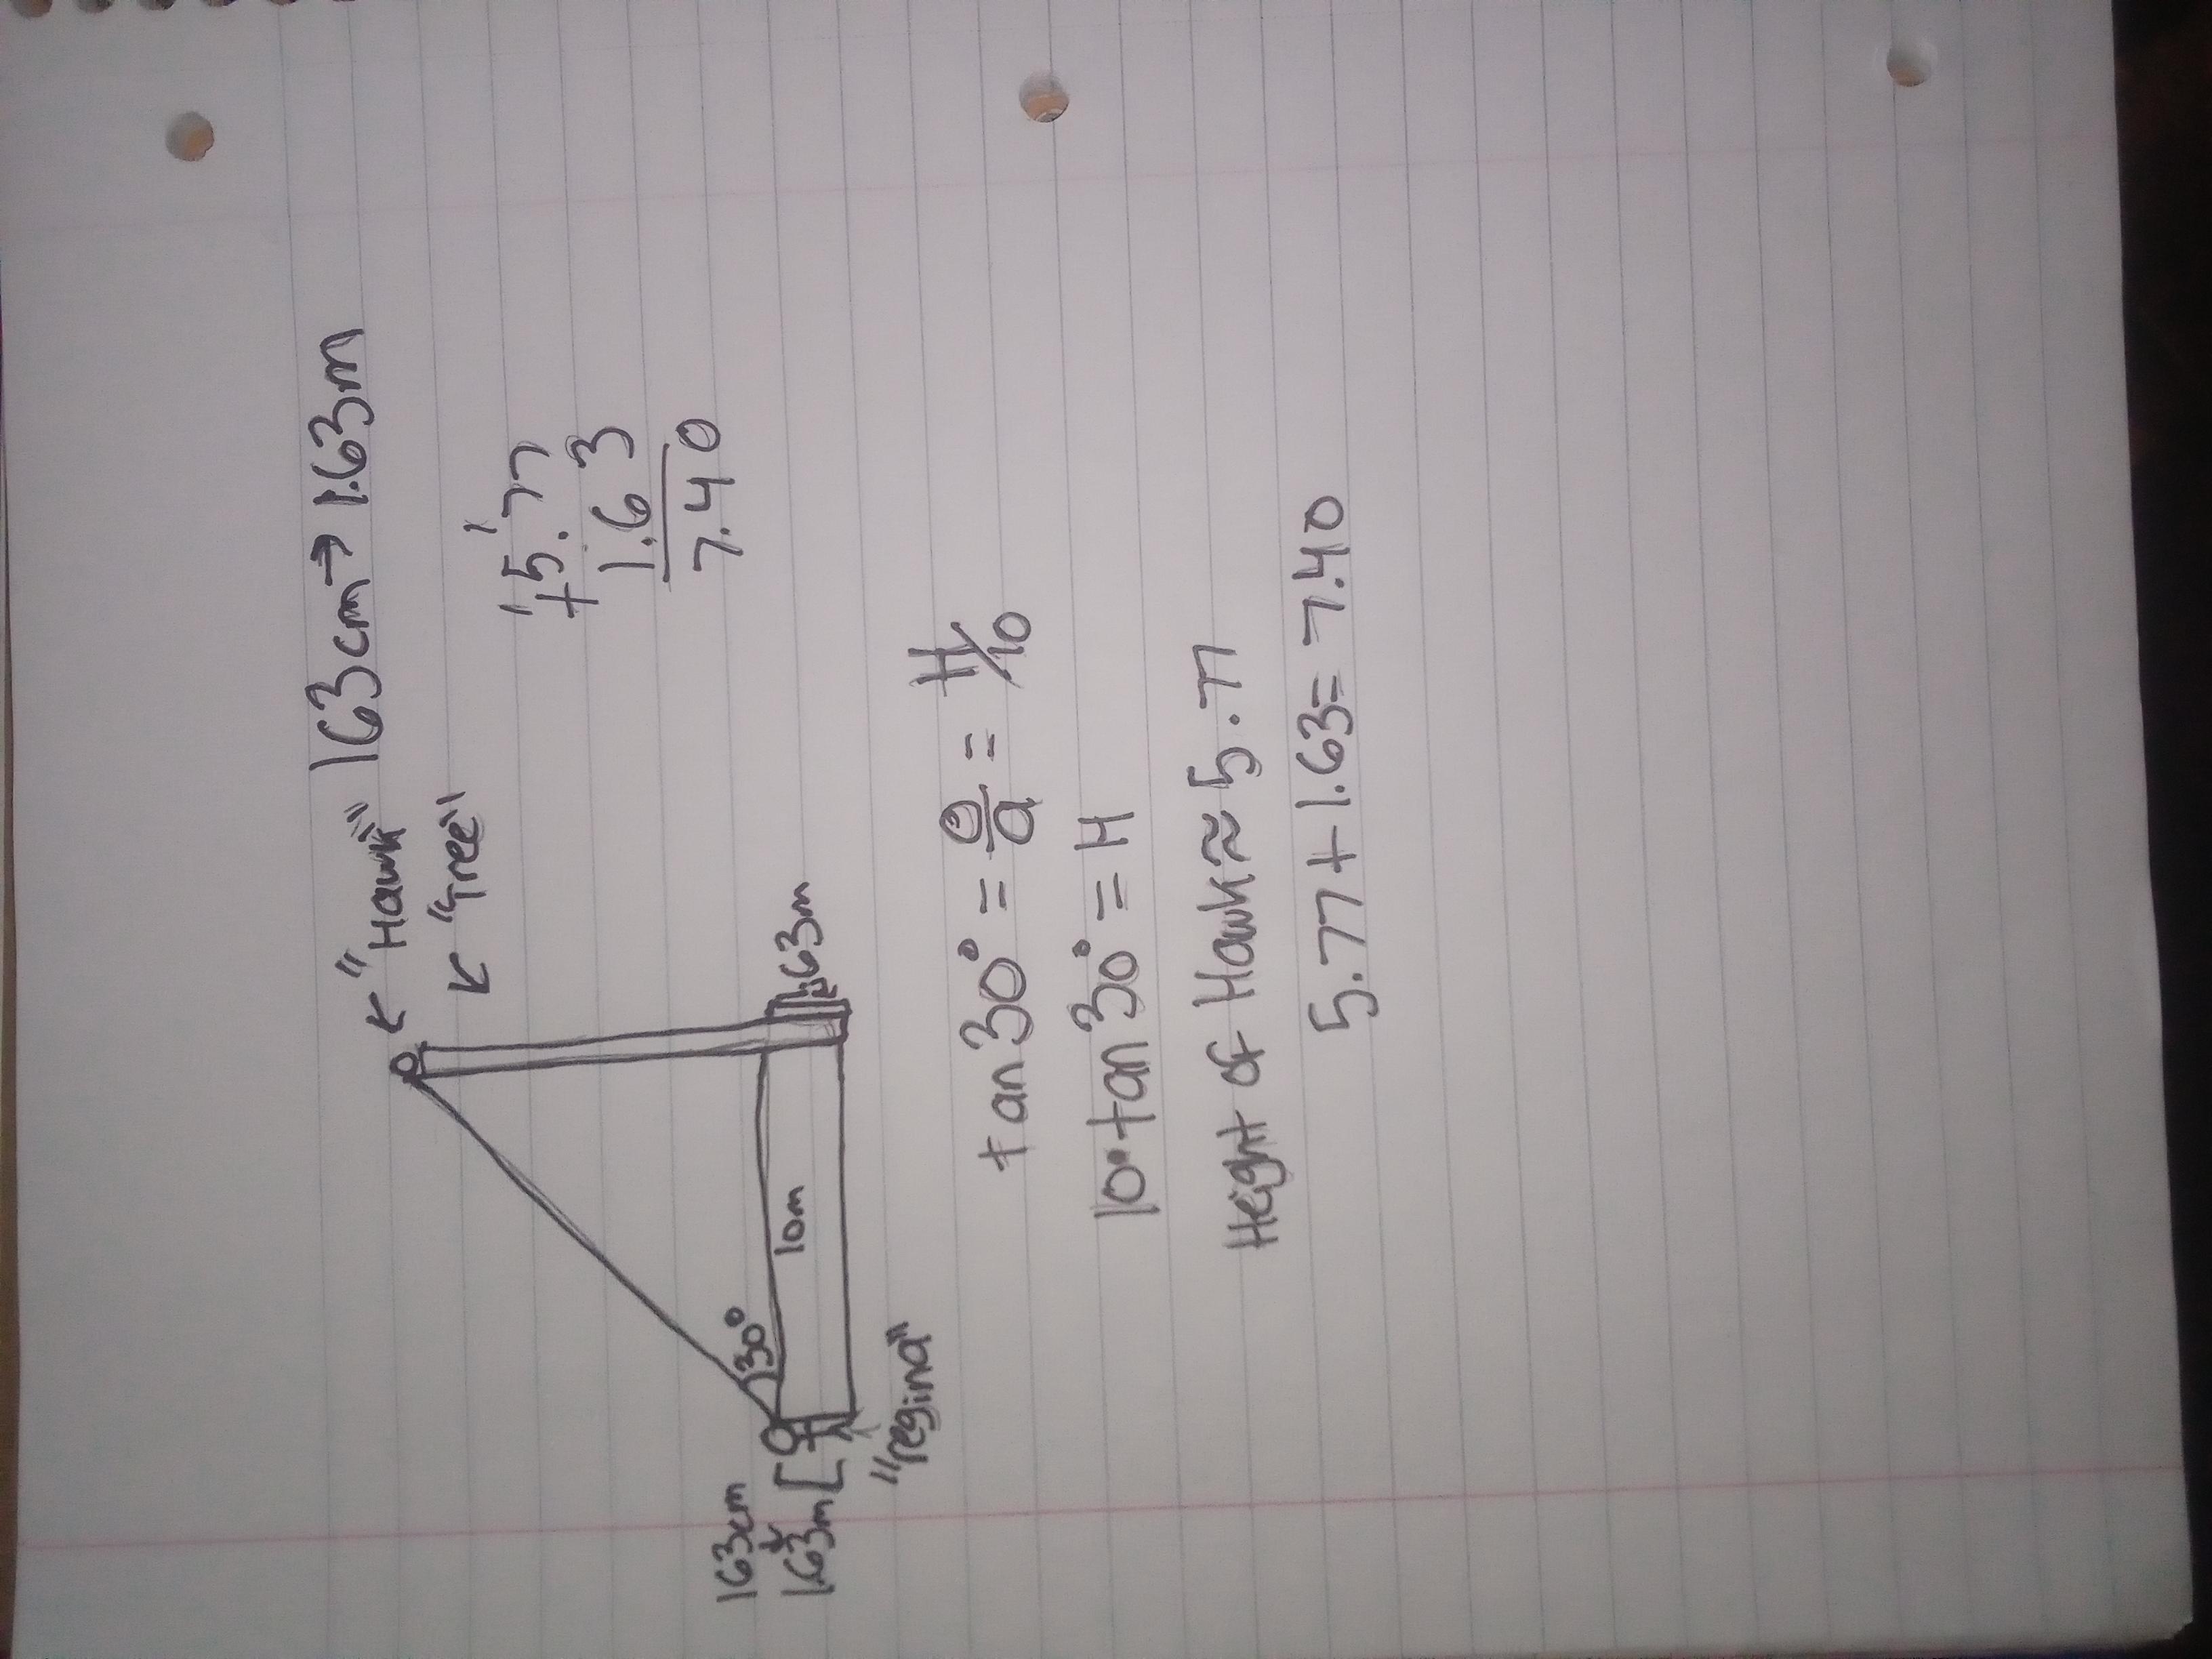 163cm → 1.63m
← "Hawk"
← "Tree"
1 1
+5.77
1.63
7.40
163cm
↓
1.63m [
30°
10m
1.63m
"regina"
tan 30° = o/a = H/10
10•tan 30° = H
Height of Hawk ≈ 5.77
5.77 + 1.63 = 7.40